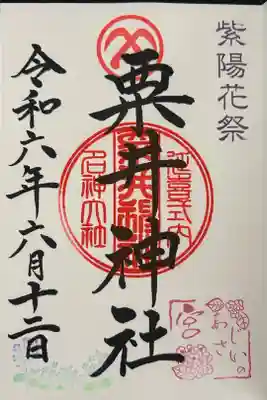 紫陽花祭
延喜式内
粟井神社
名神大社
令和六年六月十二日
あじさいの宮